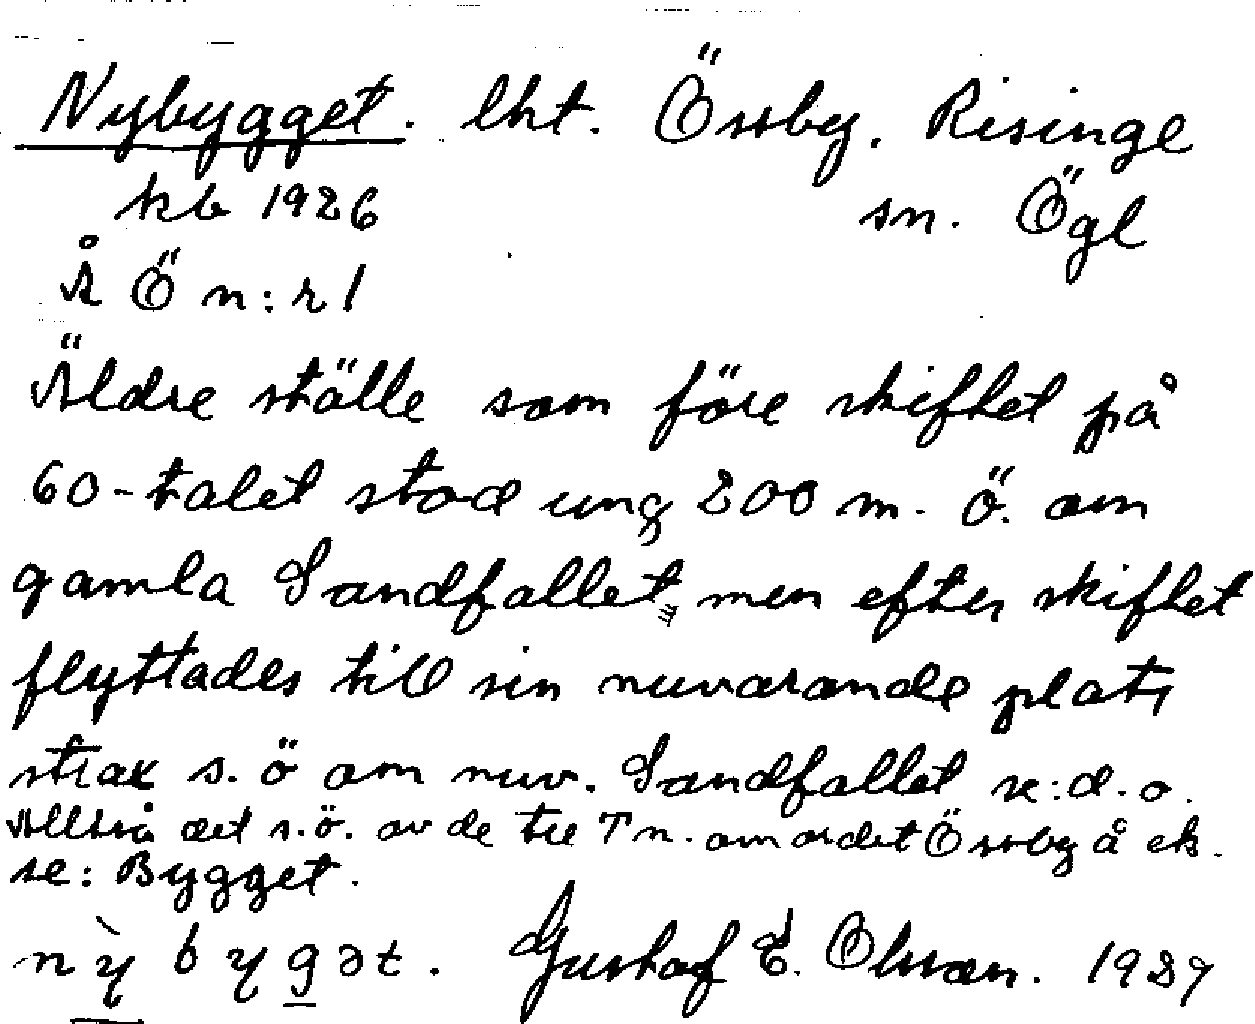 Nybygget. lht. Össby. Risinge
kb 1926 sn. Ögl
Å Ö n:r 1
Äldre ställe som före skiftet på
60-talet stod ung 200 m. ö. om
gamla Sandfallet, men efter skiftet
flyttades till sin nuvarande plats
strax s.ö om nuv. Sandfallet se:d.o.
Alltså det s.ö. av de tre T n. om ordet Össby å ek.
se: Bygget.
nỳ b y g ə t. Gustaf E. Olsson. 1929